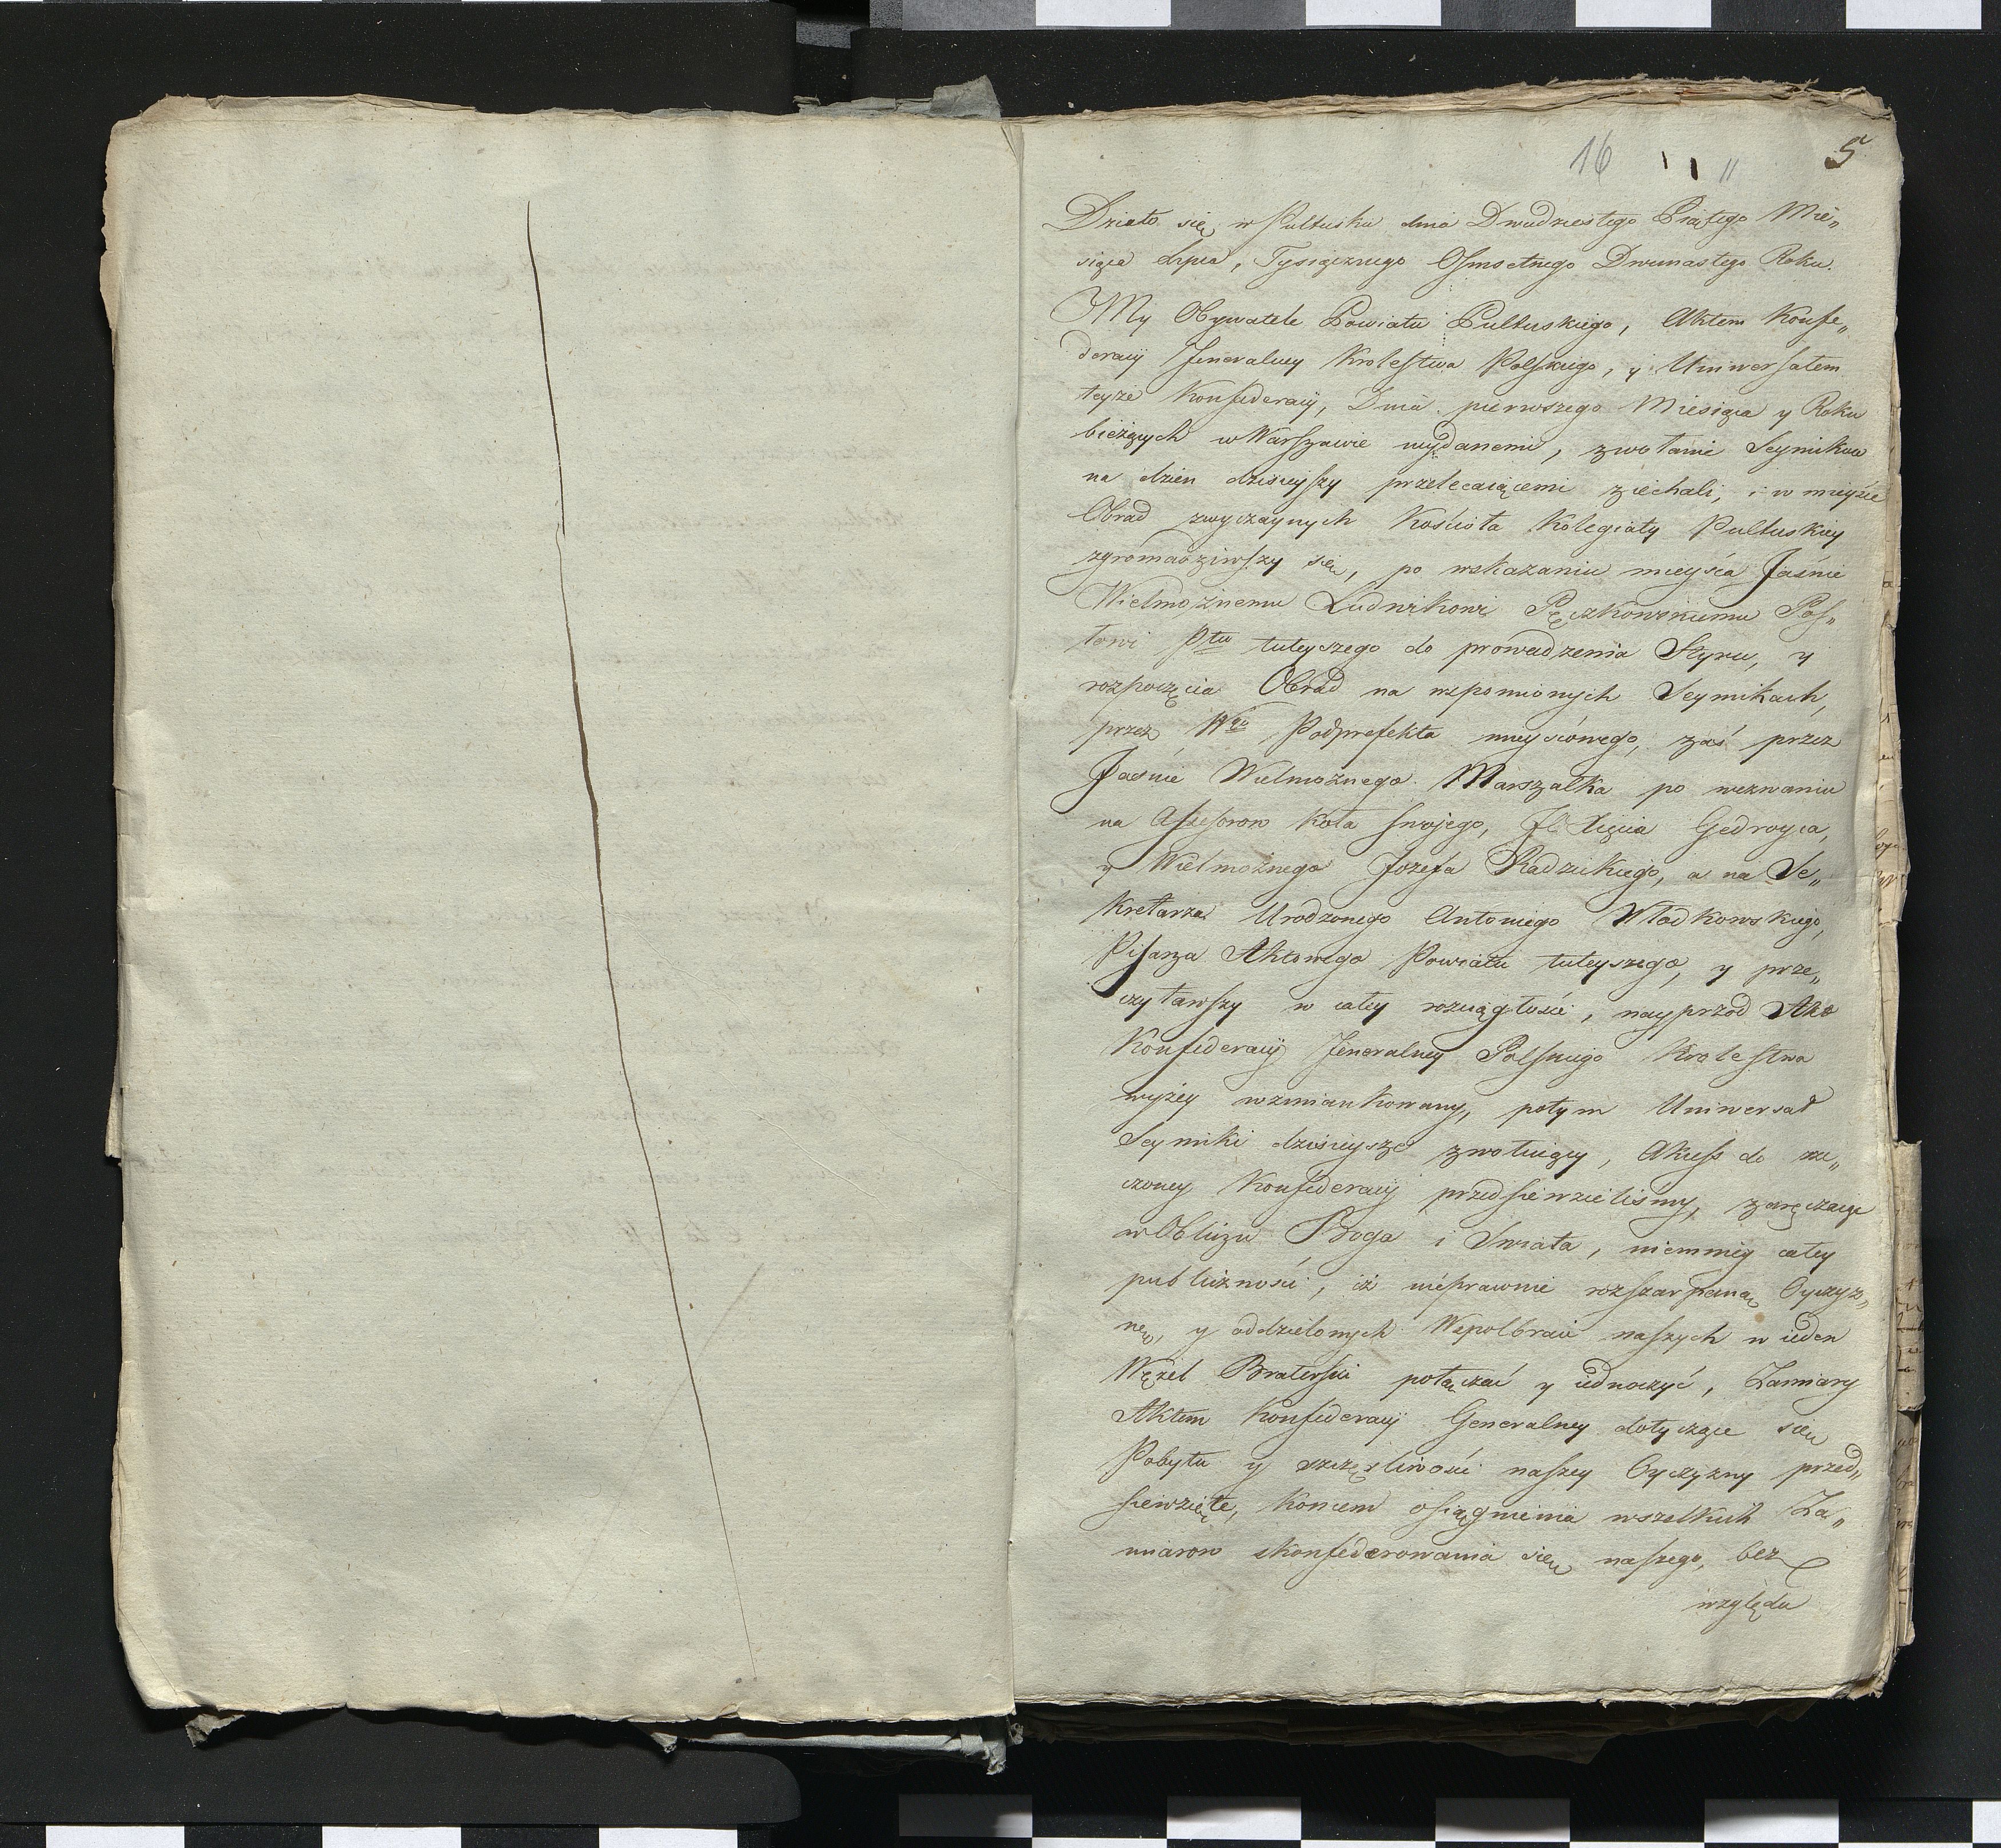 16 11 5
Działo się w Pułtusku dnia Dwudziestego Piątego Mie„
siąca Lipca, Tysiącznego Osmsetnego Dwunastego Roku.
My Obywatele Powiatu Pułtuskiego, Aktem Konfe„
deracÿ Jeneralney Krolestwa Polskiego, y Uniwersałem
teyże Konfederacÿ, Dnia pierwszego Miesiąca y Roku
bieżących w Warszawie wydanemi, zwołanie Seymikow
na dzien dzisieyszy przelecaiącemi ziechali, i w mieysce
Obrad zwyczaynych Kościoła Kolegiaty Pułtuskiey
zgromadziwszy się, po wskazaniu mieysca Jaśnie
Wielmożnemu Ludwikowi Pęczkowskiemu Pos„
łowi Ptu tuteyszego do prowadzenia Styru, y
rozpoczęcia Obrad na wspomionych Seymikach,
przez Wgo Podprefekta mieyscowego, zaś przez
Jaśnie Wielmożnego Marszałka po wezwaniu
na Assessorow Koła swojego, JO Xięcia Gedroyca,
y Wielmożnego Jozefa Radzickiego, a na Se„
kretarza Urodzonego Antoniego Włodkowskiego,
Pisarza Aktowego Powiatu tuteyszego, y prze„
czytawszy w całey rozciągłości, nayprzod Akt
Konfederacÿ Jeneralney Polskiego Krolestwa
wyżey wzmiankowany, potym Uniwersał
Seymiki dzisieysze zwołuiący, Akcess do rze„
czoney Konfederacÿ przedsiewzieliśmy, zaręczaiąc
w Obliczu Boga i Swiata, niemniey całey
publiczności, iż nieprawnie rozszarpaną Oyczyz„
nę, y oddzielonych Wspolbraci naszych w ieden
Węzeł Braterski połączać y iednoczyć, Zamiary
Aktem Konfederacÿ Generalney dotyczące się
Pobytu y szczęsliwości naszey Oyczyzny przed„
siewzięte, koncem osiągnienia wszelkich Za„
miarow skonfederowania się naszego, bez
względu